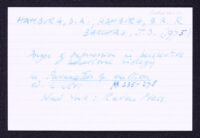 HAMBURG, D.A., HAMBURG, B.A. &
BARCHAS, J.D. 1975
Anger and depression in perspective
of behavioral biology
in Parameters of emotion
ed. L. Levi pp 235-278
New York: Raven Press.